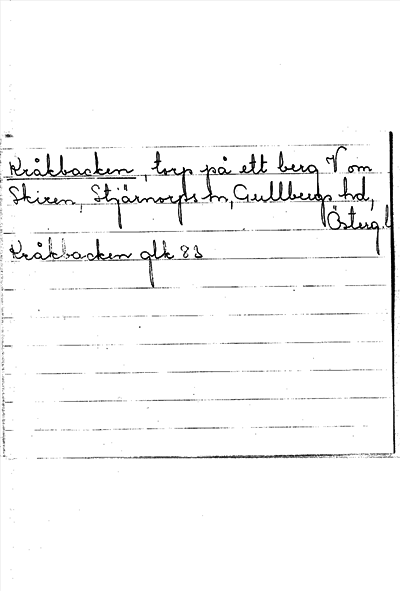 Kråkbacken, torp på ett berg V om
Skiren, Stjärnorps sn, Gullbergs hd,
Österg.l
Kråkbacken glk 83